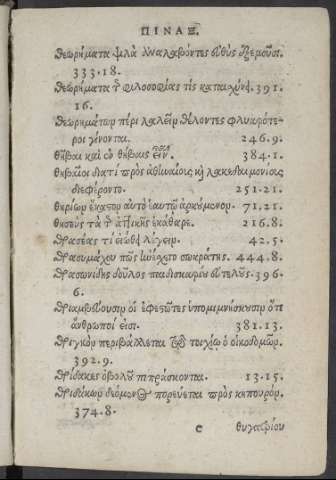 ΠΙΝΑΞ.
Θεωρήματα ψιλὰ ἀναλαβόντες εὐθὺς ἐξεμοῦσι.
333.18.
Θεωρήματα τ φιλοσοφίας τίς καταισχύν 391.
16.
Θεωρημάτων πέρι λαλεῖν θέλοντες φλυαρότε-
ροι γίνονται. 246.9.
Θῆβαι καὶ οὐ θῆβαις εἰσὶν. 384.1.
Θηβαῖοι διατί πρὸς ἀθηναίους κὴ λακεδαιμονίους
διεφέροντο. 251.21.
Θηρίων ἕκαστον αὐτὸ ἑαυτῷ ἀρκούμενον. 71.21.
Θησεὺς τὰ τ ἀττικῆς ἐκάθαρε. 216.8.
Θρασέας τί εἰώθει λέγειν. 42.5.
Θρασυμάχου πῶς ἠνείχετο σωκράτης. 444.8.
Θρασωνίδης δοῦλος παιδισκαρίου εὐτελοῦς. 396.
6.
Θριαμβεύουσιν οἱ ἐφεστῶτες ὑπομιμνήσκουσιν ὅτι
ἄνθρωποί εἰσι. 381.13.
Θριγκὸν περιβάλλεται τῷ τοιχίῳ ὁ οἰκοδομῶν.
392.9.
Θρίδακες ὀβολοῦ πιπράσκονται. 13.15.
Θριδάκων δεόμενος πορεύεται πρὸς κηπουρόν.
374.8.
e θυγατρίου